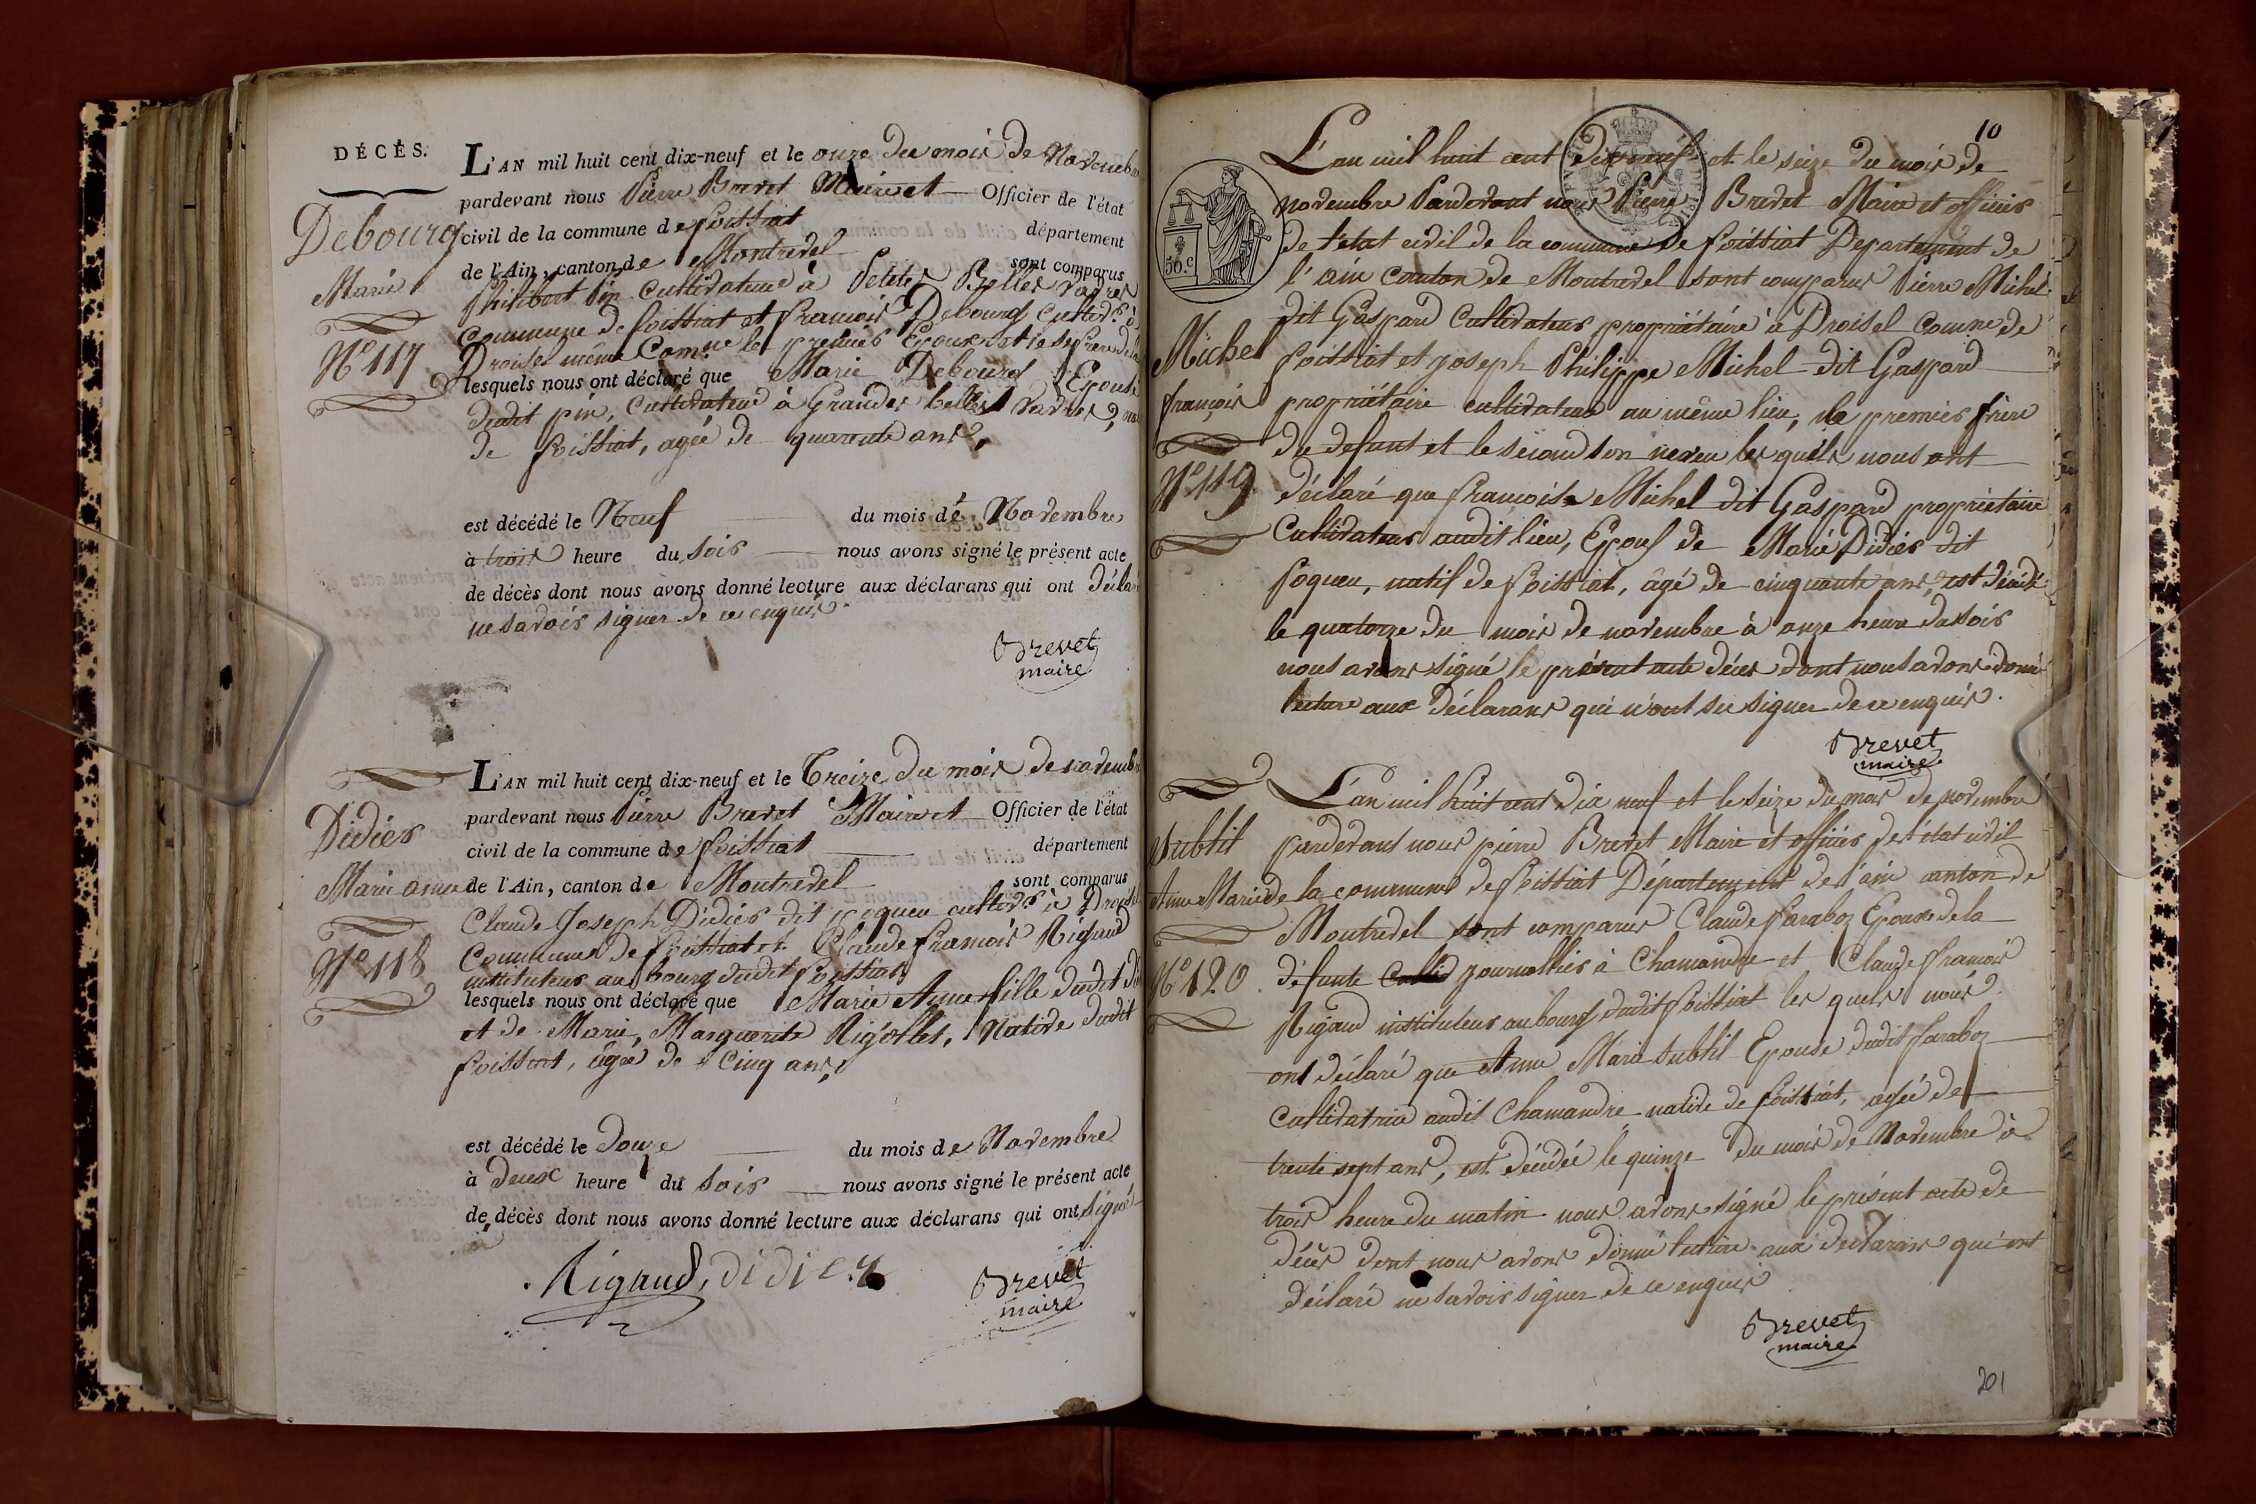 DÉCÈS.
Debourg
Marie
N° 117
L'AN mil huit cent dix-neuf et le onze du mois de Novembre
pardevant nous Pierre Brevet Maire et Officier de l'état
civil de la commune de foissiat département
de l'Ain, canton de Montrevel sont comparus
Philibert Pin cultivateur à Petites Belles Vavres
Commune de foissiat et françois Debourg cultivr à
Droisel même Comne le premier Epoux et le se frere de la
lesquels nous ont déclaré que Marie Debourg Epouse
dudit pin, Cultivateur à Grandes belles Vavres,
de foissiat, agée de quarante ans,
est décédé le Neuf du mois de Novembre
à trois heure du soir nous avons signé le présent acte
de décès dont nous avons donné lecture aux déclarans qui ont déclaré
ne savoir signer de ce enquis.
Brevet
maire
Didier
Marie anne
N° 118
L'AN mil huit cent dix-neuf et le Treize du mois de novembre
pardevant nous Pierre Brevet Maire et Officier de l'état
civil de la commune de foissiat département
de l'Ain, canton de Montrevel sont comparus
Claude Joseph Didier dit poqueu cultivr à Droisel
Commune de foissiat et Claude françois Rigaud
instituteur au bourg dudit foissiat
lesquels nous ont déclaré que Marie Anne fille dudit
et de Marie, Marguerite Rigollet, Native dudit
foissiat, âgée de Cinq ans,
est décédé le Douze du mois de Novembre
à deux heure du soir nous avons signé le présent acte
de décès dont nous avons donné lecture aux déclarans qui ont signé
Rigaud, didier
Brevet
maire
10
50.c
Michel
françois
N° 119
L'an mil huit cent dix neuf et le seize du mois de
novembre Pardevant nous Pierre Brevet Maire et officier
de l'état civil de la commune de foissiat Département de
l'ain canton de Montrevel sont comparus Pierre Michel
dit Gaspard Cultivateur propriétaire à Droisel comne de
foissiat et joseph Philippe Michel dit Gaspard
propriétaire cultivateur au même lieu, le premier frère
du defunt et le second son neveu lesquels nous ont
déclaré que françois Michel dit Gaspard propriétaire
Cultivateur audit lieu, Epoux de Marie Didier dit
poqueu, natif de foissiat, âgé de cinquante ans, est décédé
le quatorze du mois de novembre à onze heure du soir
nous avons signé le présent acte décès dont nous avons donné
lecture aux déclarans qui n'ont su signer de ce enquis.
Brevet
maire
Subtil
Anne Marie
N° 120
L'an mil huit cent dix neuf et le seize du mois de novembre
pardevant nous pierre Brevet Maire et officier de l'état civil
de la commune de foissiat Département de l'ain canton de
Montrevel sont comparus Claude faraboz Epoux de la
défunte journallier à Chamandre et Claude françois
Rigaud instituteur au bourg dudit foissiat les quels nous
ont déclaré que Anne Marie Subtil Epouse dudit faraboz
Cultivatrice audit Chamandre native de foissiat, agée de
trente sept ans, est décédée le quinze du mois de Novembre à
trois heure du matin nous avons signé le présent acte de
décès dont nous avons donné lecture aux déclarans qui ont
déclaré ne savoir signer de ce enquis
Brevet
maire
201